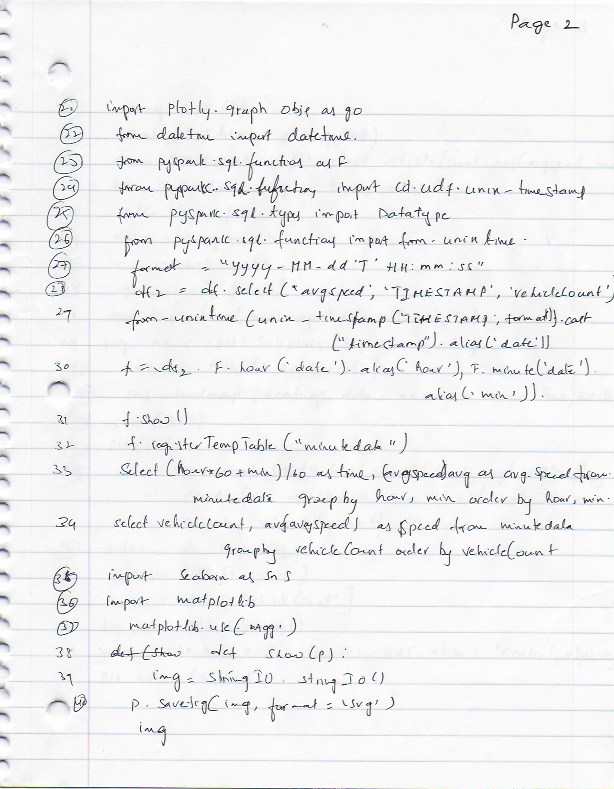 Page 2
21 import plotly.graph obje as go
22 from datetime import datetime.
23 from pyspark.sql.functions as F
24 from pyspark.sql.functions import cd.udf.unix-timestamp
25 from pyspark.sql.types import Datatype
26 from pyspark.sql.functions import from-unixtime.
27 format = "yyyy-MM-dd'T' HH:mm:ss"
28 df2 = df.select('avgspeed', 'TIMESTAMP', 'vehiclecount')
29 from-unixtime (unix-timestamp ('TIMESTAMP', format)).cast
("timestamp").alias('date'))
30 f = df2. F.hour('date').alias('hour'), F.minute('date').
alias('min')).
31 f.show()
32 f.registerTempTable("minutedata")
33 Select (hour*60+min)/60 as time, (avgspeed)avg as avg.speed from
minutedata group by hour, min order by hour, min.
34 select vehiclecount, avg(avgspeed) as speed from minutedata
groupby vehicleCount order by vehicleCount
35 import Seaborn as SnS
36 import matplotlib
37 matplotlib.use('Agg')
38 def (Show def show(p):
39 img = StringIO.StringIO()
40 p.savefig(img, format='svg')
img